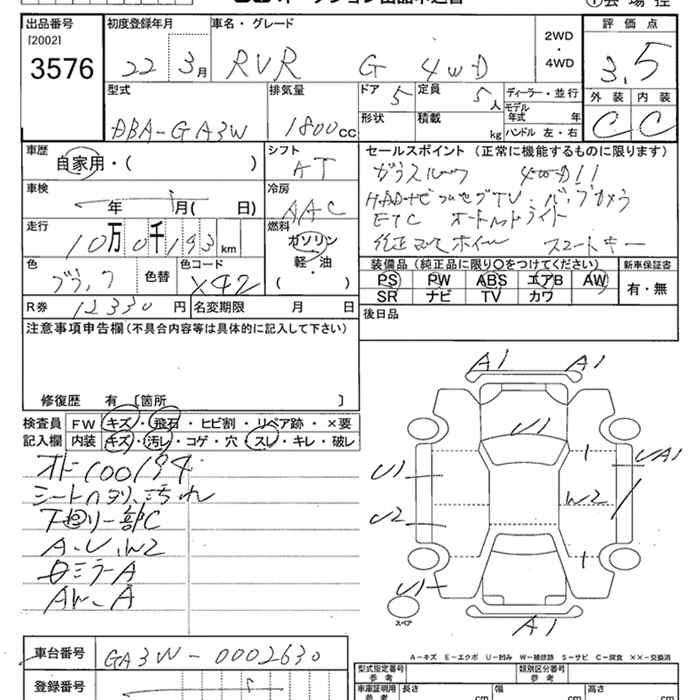 オークション出品申込書
出品番号 初度登録年月 車名・グレード 2WD・4WD 評価点
[2002]
3576 22 3月 RVR G 4WD 3.5
型式 排気量 ドア 5 定員 5人 ディーラー・並行 外装 内装
DBA-GA3W 1800cc 形状 積載 kg モデル年式 年 ハンドル 左・右 C C
車歴 シフト セールスポイント (正常に機能するものに限ります)
自家用・( ) AT
ガラスルーフ 4WD!!
車検 冷房
年 月( 日) AAC
ETC オートライト
走行 燃料
10万0千193km ガソリン・軽・油( )
純正 ホイール スマートキー
色 色替 色コード 装備品 (純正品に限り○をつけてください) 新車保証書
ブラック X42 PS PW ABS エアB AW 有・無
SR ナビ TV カワ
R券 12330円 名変期限 月 日 後日品
注意事項申告欄 (不具合内容等は具体的に記入して下さい)
修復歴 有 [箇所 ]
検査員 FW キズ・飛石・ヒビ割・リペア跡・×要
記入欄 内装 キズ・汚レ・コゲ・穴・スレ・キレ・破レ
シートヘタリ、汚れ
下回り一部C
A、U、W2
ロミラーA
AW、A
A1 A1
U1
U1 UA1
U2 W2
U1
スペア
A1
A-キズ E-エクボ U-凹み W-補修跡 S-サビ C-腐食 ××-交換済
車台番号 GA3W-0002630
登録番号
型式指定番号 参考 類別区分番号 参考
車庫証明用 参考 長さ cm 幅 cm 高さ cm